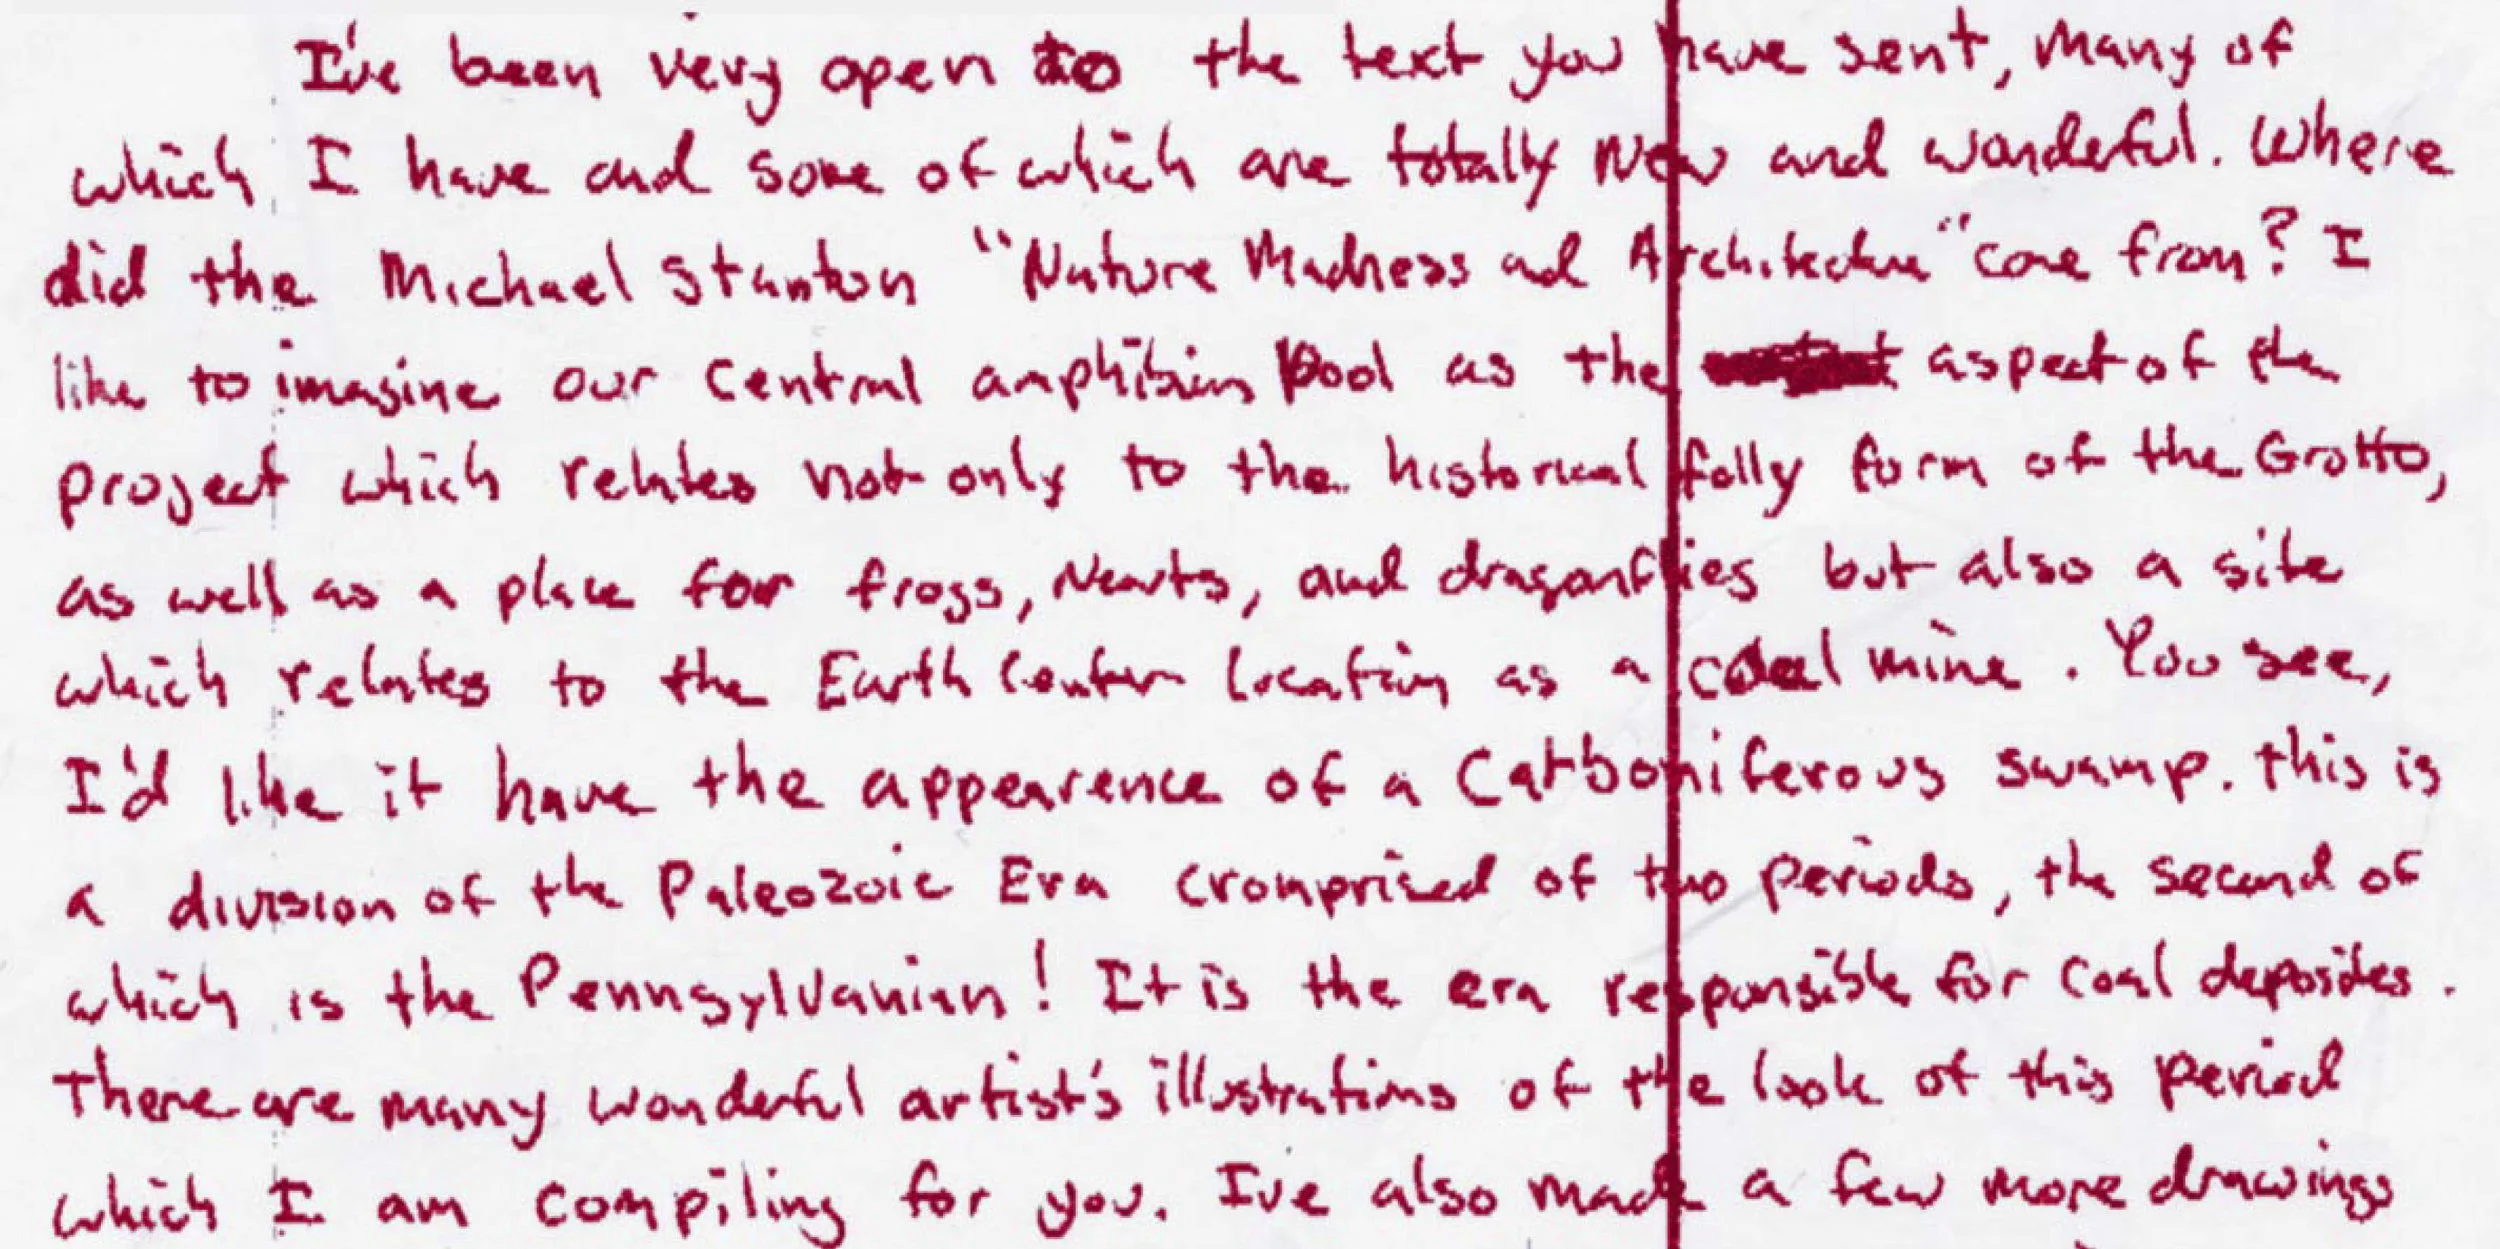 I've been very open to the text you have sent, Many of
which I have and some of which are totally New and wonderful. Where
did the Michael Stanton "Nature Madness and Architecture" come from? I
like to imagine our Central amphibian pool as the aspect of the
project which relates not only to the historical folly form of the Grotto,
as well as a place for frogs, Newts, and dragonflies but also a site
which relates to the Earth Center location as a coal mine. You see,
I'd like it have the appearence of a Carboniferous swamp. This is
a division of the Paleozoic Era cromprised of two periods, the second of
which is the Pennsylvanian! It is the era responsible for coal deposides.
There are many wonderful artist's illustrations of the look of this period
which I am compiling for you. I've also made a few more drawings